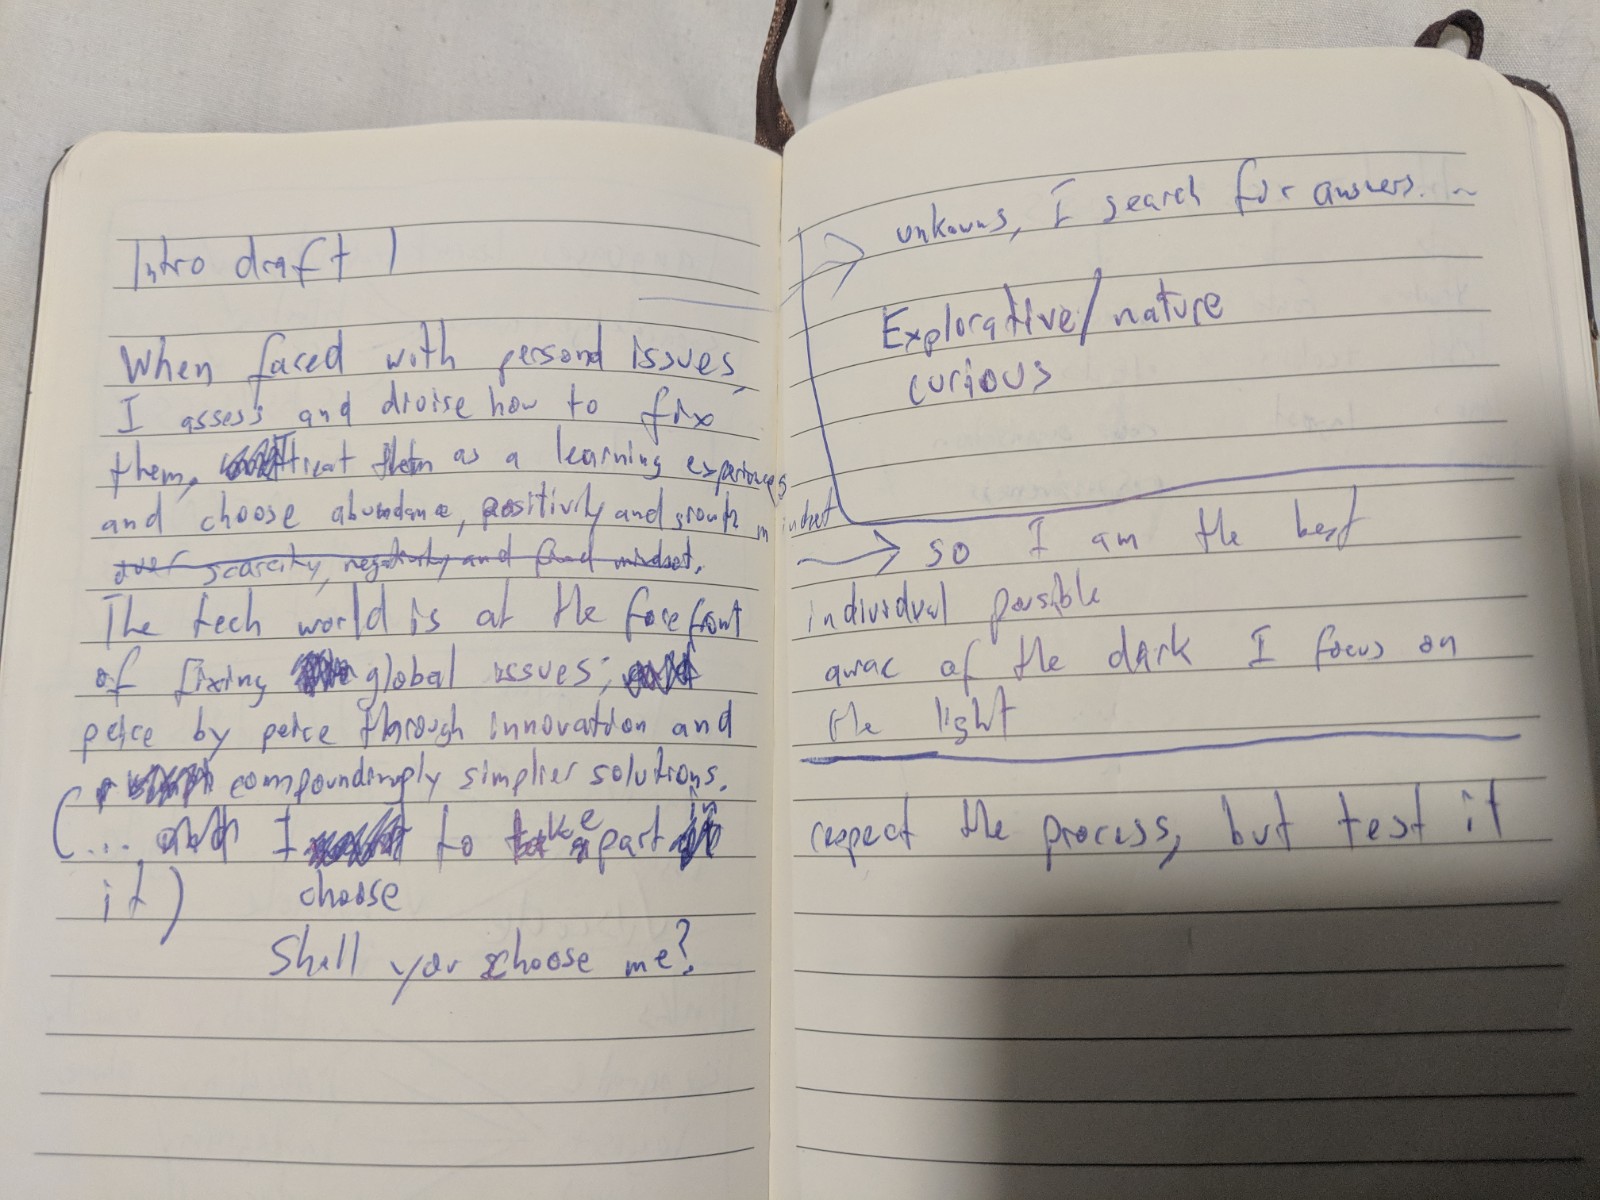 Intro draft 1
When faced with personal issues,
I assess and divise how to fix
them, treat them as a learning experiences
and choose abundance, positivity and growth mindset
over scarcity, negativity and fixed mindset.
The tech world is at the forefront
of fixing global issues;
peice by peice through innovation and
compoundingly simplier solutions.
(... and I to take part in
it) choose
Shall you choose me?
unkowns, I search for answers. ~
Explorative / nature
curious
so I am the best
individual possible
aware of the dark I focus on
the light
respect the process, but test it